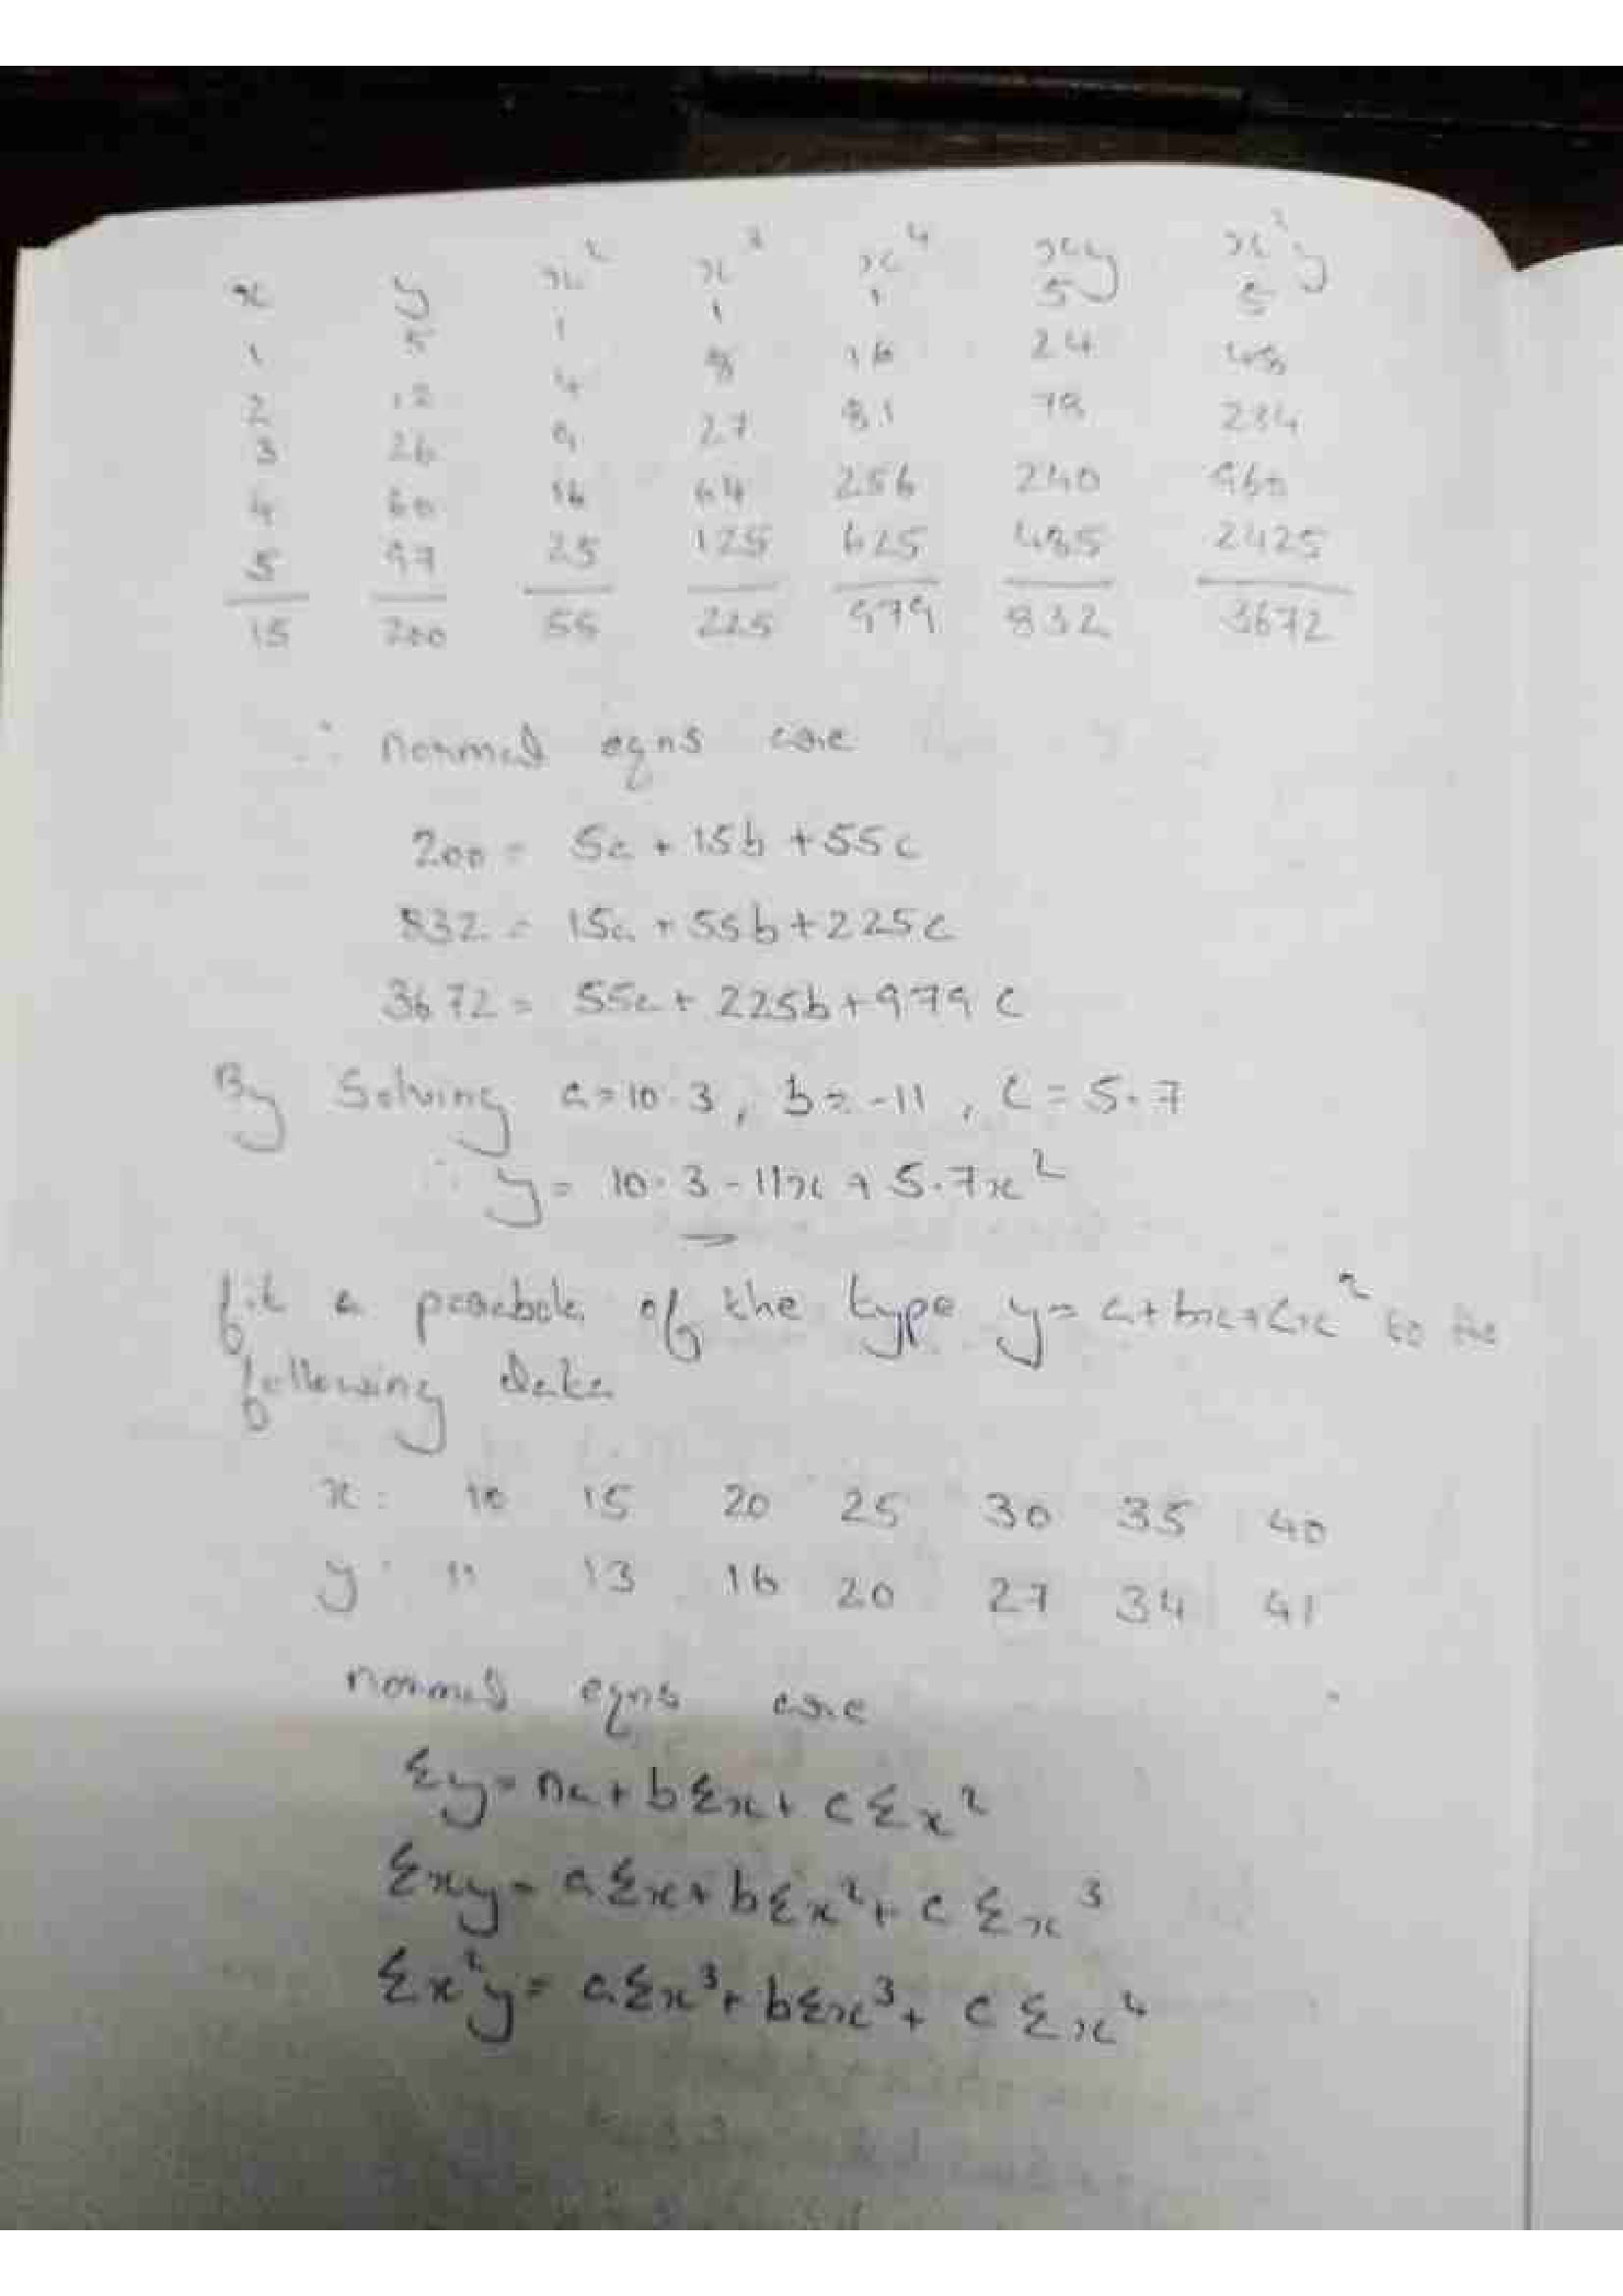 x y x² x³ x⁴ xy x²y
1 5 1 1 1 5 5
2 12 4 8 16 24 48
3 26 9 27 81 78 234
4 60 16 64 256 240 960
5 97 25 125 625 485 2425
15 200 55 225 979 832 3672
∴ normal eqns are
200 = 5a + 15b + 55c
832 = 15a + 55b + 225c
3672 = 55a + 225b + 979c
By Solving a = 10.3, b = -11, c = 5.7
∴ y = 10.3 - 11x + 5.7x²
fit a parabola of the type y = a + bx + cx² to the
following data
x: 10 15 20 25 30 35 40
y: 11 13 16 20 27 34 41
normal eqns are
Σy = na + bΣx + cΣx²
Σxy = aΣx + bΣx² + cΣx³
Σx²y = aΣx³ + bΣx³ + cΣx⁴